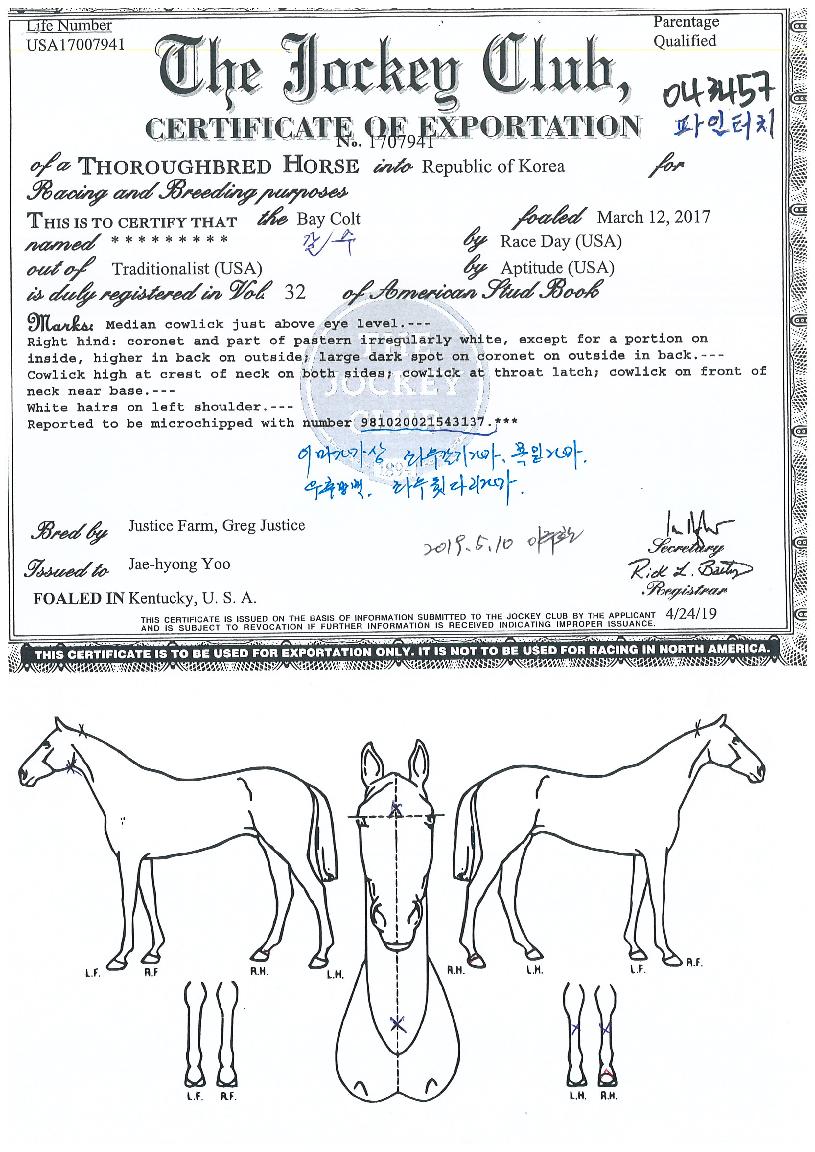 Life Number
USA17007941
Parentage
Qualified
The Jockey Club,
043457
파인터치
CERTIFICATE OF EXPORTATION
No. 1707941
of a THOROUGHBRED HORSE into Republic of Korea for
Racing and Breeding purposes
THIS IS TO CERTIFY THAT the Bay Colt foaled March 12, 2017
named * * * * * * * * * 갈/수 by Race Day (USA)
out of Traditionalist (USA) by Aptitude (USA)
is duly registered in Vol. 32 of American Stud Book
Marks: Median cowlick just above eye level.---
Right hind: coronet and part of pastern irregularly white, except for a portion on
inside, higher in back on outside; large dark spot on coronet on outside in back.---
Cowlick high at crest of neck on both sides; cowlick at throat latch; cowlick on front of
neck near base.---
White hairs on left shoulder.---
Reported to be microchipped with number 981020021543137.***
THE
JOCKEY
CLUB
1894
좌우갈기가마.
좌우뒷다리가마.
Bred by Justice Farm, Greg Justice
2019.5.10
Secretary
Issued to Jae-hyong Yoo
Rick L. Bailey
Registrar
FOALED IN Kentucky, U. S. A.
THIS CERTIFICATE IS ISSUED ON THE BASIS OF INFORMATION SUBMITTED TO THE JOCKEY CLUB BY THE APPLICANT
AND IS SUBJECT TO REVOCATION IF FURTHER INFORMATION IS RECEIVED INDICATING IMPROPER ISSUANCE.
4/24/19
THIS CERTIFICATE IS TO BE USED FOR EXPORTATION ONLY. IT IS NOT TO BE USED FOR RACING IN NORTH AMERICA.
L.F. R.F R.H. L.H. R.H. L.H. L.F. R.F.
L.F. R.F. L.H. R.H.